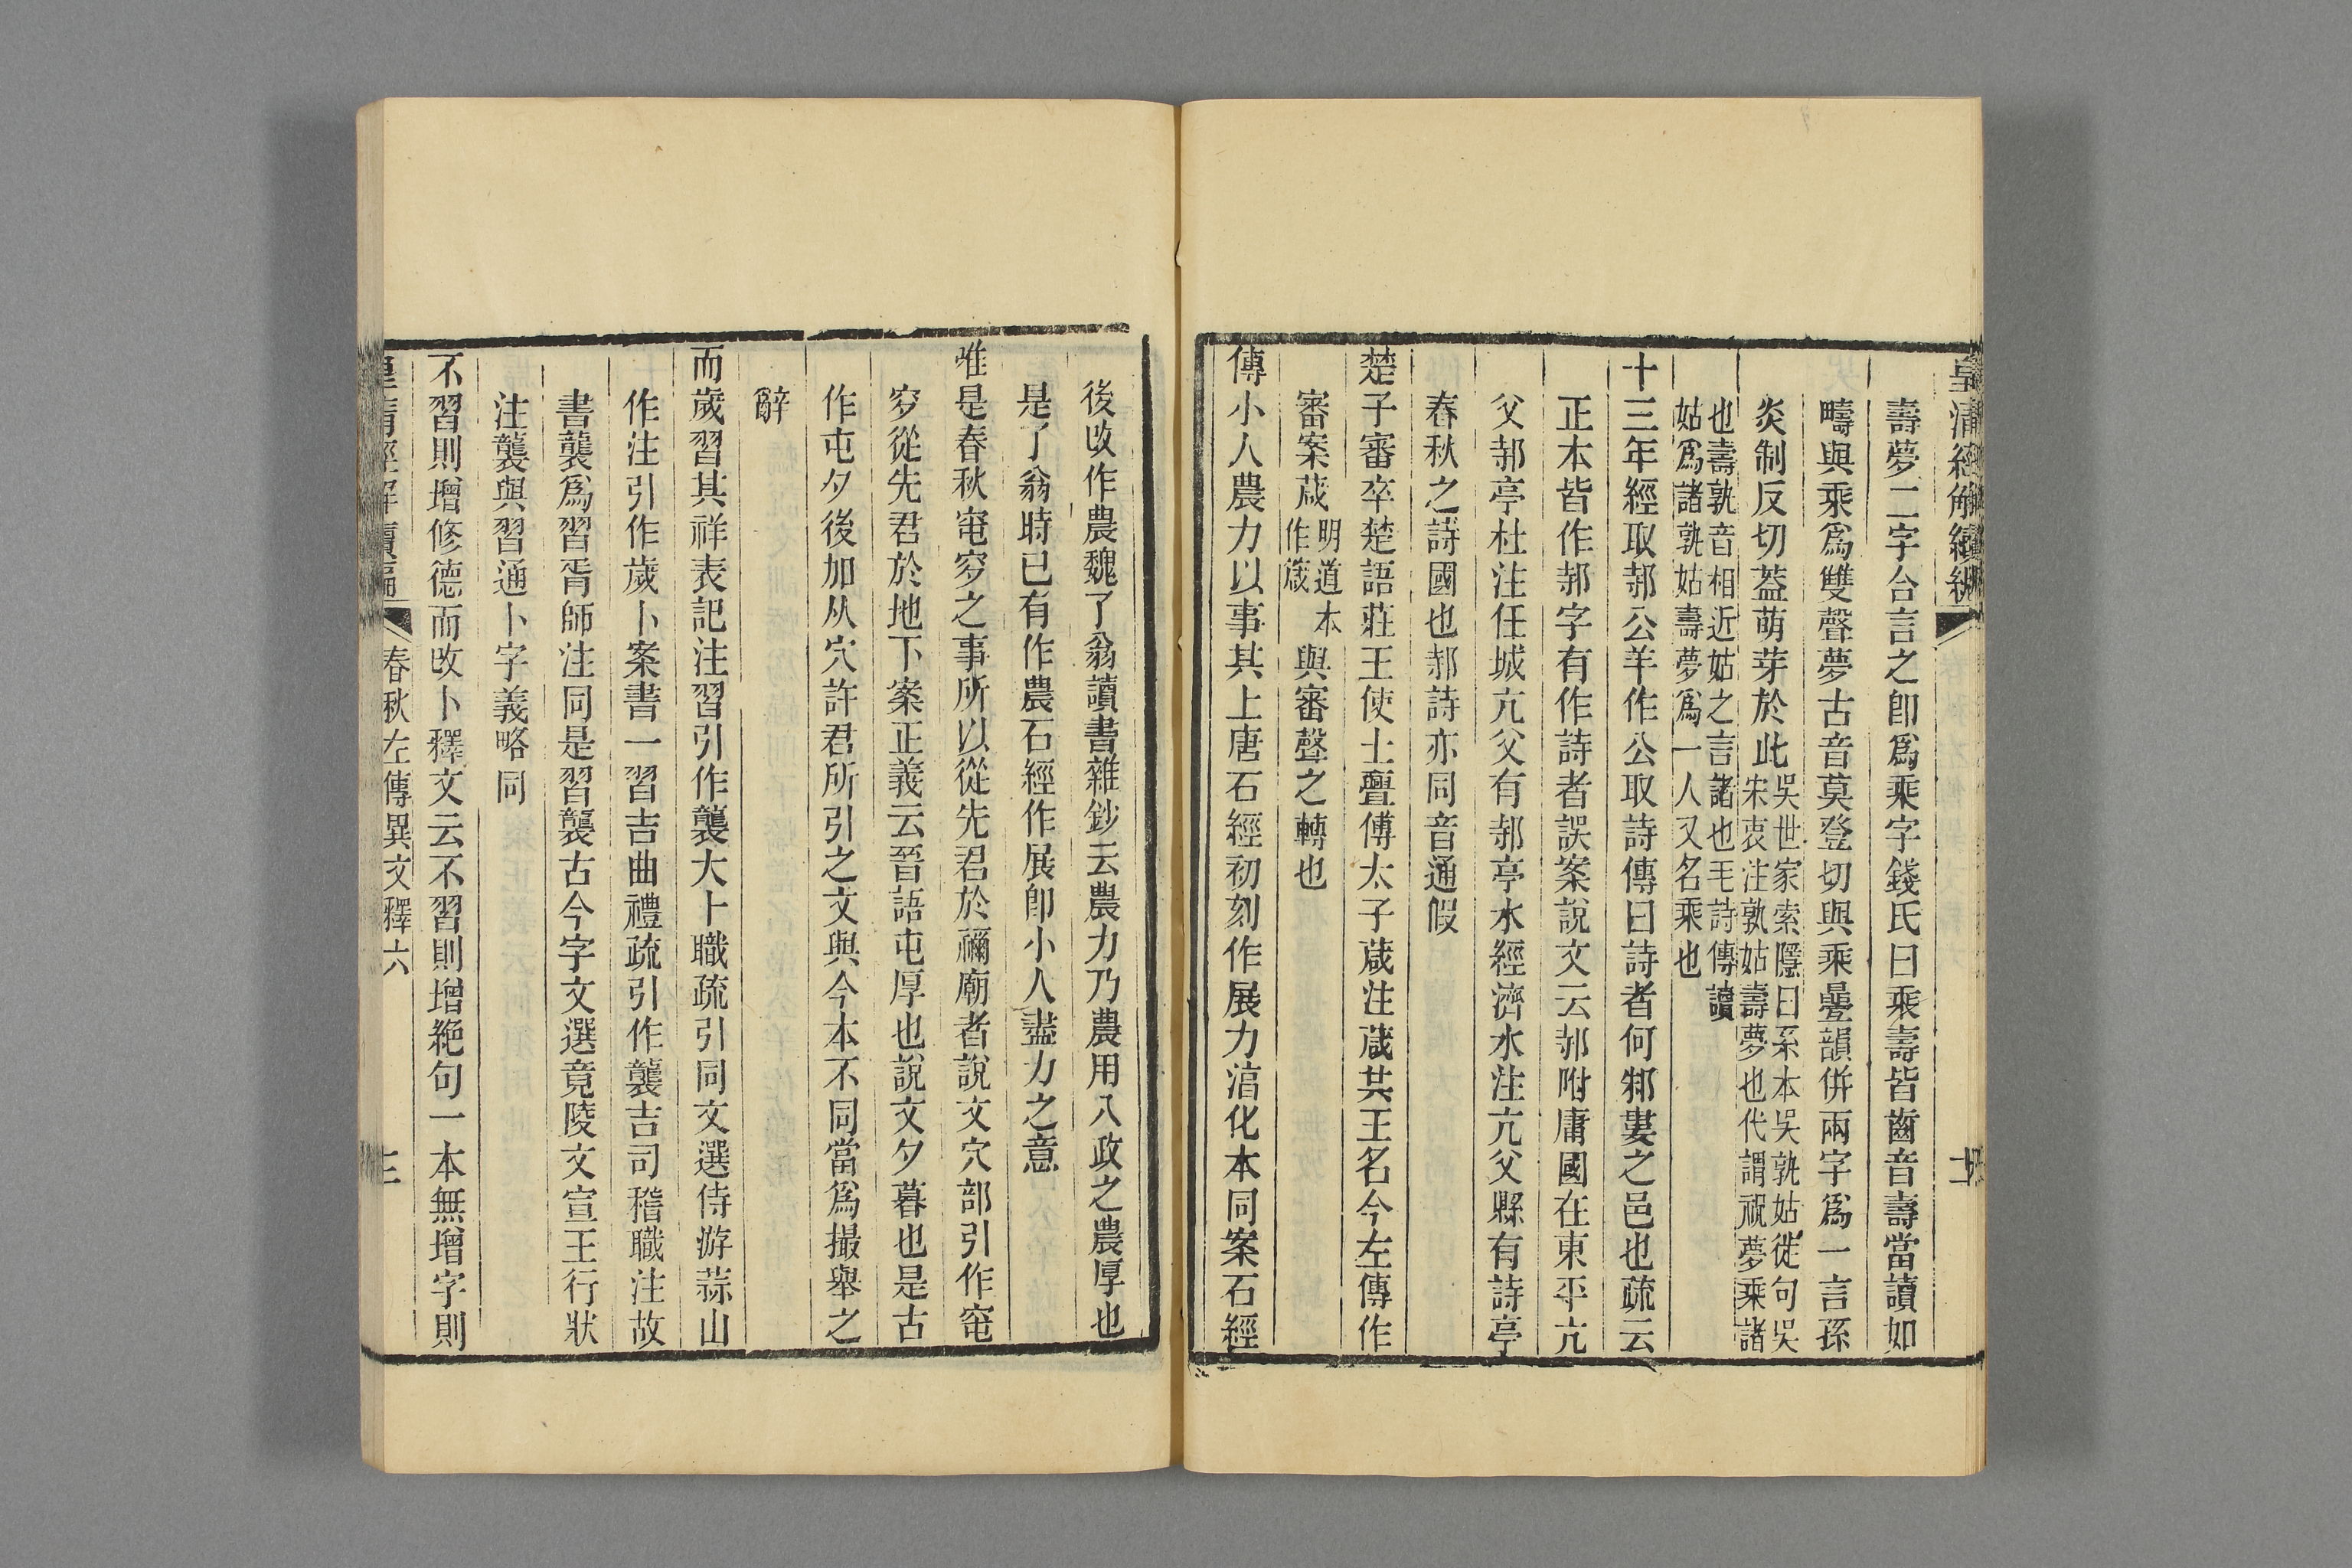 皇清經解續編
壽夢二字合言之卽爲乘字錢氏曰乘壽皆齒音壽當讀如
疇與乘爲雙聲夢古音莫登切與乘疊韻併兩字爲一言孫
炎制反切蓋萌芽於此吳世家索隱曰系本吳孰姑徙句吳宋衷注孰姑壽夢也代謂祝夢乘諸
也壽孰音相近姑之言諸也毛詩傳讀姑爲諸孰姑壽夢爲一人又名乘也
十三年經取邿公羊作公取詩傳曰詩者何邾婁之邑也疏云
正本皆作邿字有作詩者誤案說文云邿附庸國在東平亢
父邿亭杜注任城亢父有邿亭水經濟水注亢父縣有詩亭
春秋之詩國也邿詩亦同音通假
楚子審卒楚語莊王使士亹傅太子葴注葴共王名今左傳作
審案葴明道本作箴與審聲之轉也
傳小人農力以事其上唐石經初刻作展力湻化本同案石經
後改作農魏了翁讀書雜鈔云農力乃農用八政之農厚也
是了翁時已有作農石經作展卽小人盡力之意
唯是春秋窀穸之事所以從先君於禰廟者說文穴部引作窀
穸從先君於地下案正義云晉語屯厚也說文夕暮也是古
作屯夕後加从穴許君所引之文與今本不同當爲撮舉之
辭
而歲習其祥表記注習引作襲大卜職疏引同文選侍游蒜山
作注引作歲卜案書一習吉曲禮疏引作襲吉司稽職注故
書襲爲習胥師注同是習襲古今字文選竟陵文宣王行狀
注襲與習通卜字義略同
不習則增修德而改卜釋文云不習則增絶句一本無增字則
皇清經解續編
春秋左傳異文釋六